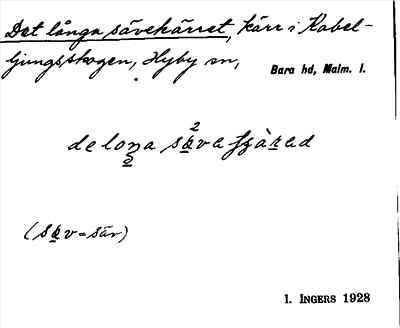 Det långa sävekärret, kärr i Kabel-
ljungsskogen, Hyby sn,
Bara hd, Malm. l.
de loŋa sävefʃàrad
(säv = säv)
I. INGERS 1928